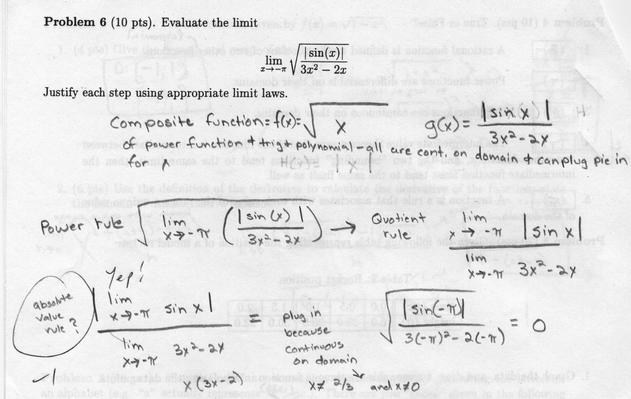 Problem 6 (10 pts). Evaluate the limit
lim x→-π √(|sin(x)| / (3x² − 2x))
Justify each step using appropriate limit laws.
Composite function: f(x)= √x g(x)= |sin x| / (3x²-2x)
of power function + trig + polynomial - all are cont. on domain + can plug pie in
for x
H(x)= |x|
Power rule √(lim x→-π (|sin(x)| / (3x²-2x))) → Quotient rule lim x→-π |sin x| / lim x→-π 3x²-2x
Yep!
absolute value rule? |lim x→-π sin x| / lim x→-π 3x²-2x = plug in because continuous on domain √(|sin(-π)| / (3(-π)²-2(-π))) = 0
-1 x(3x-2) x≠2/3 and x≠0